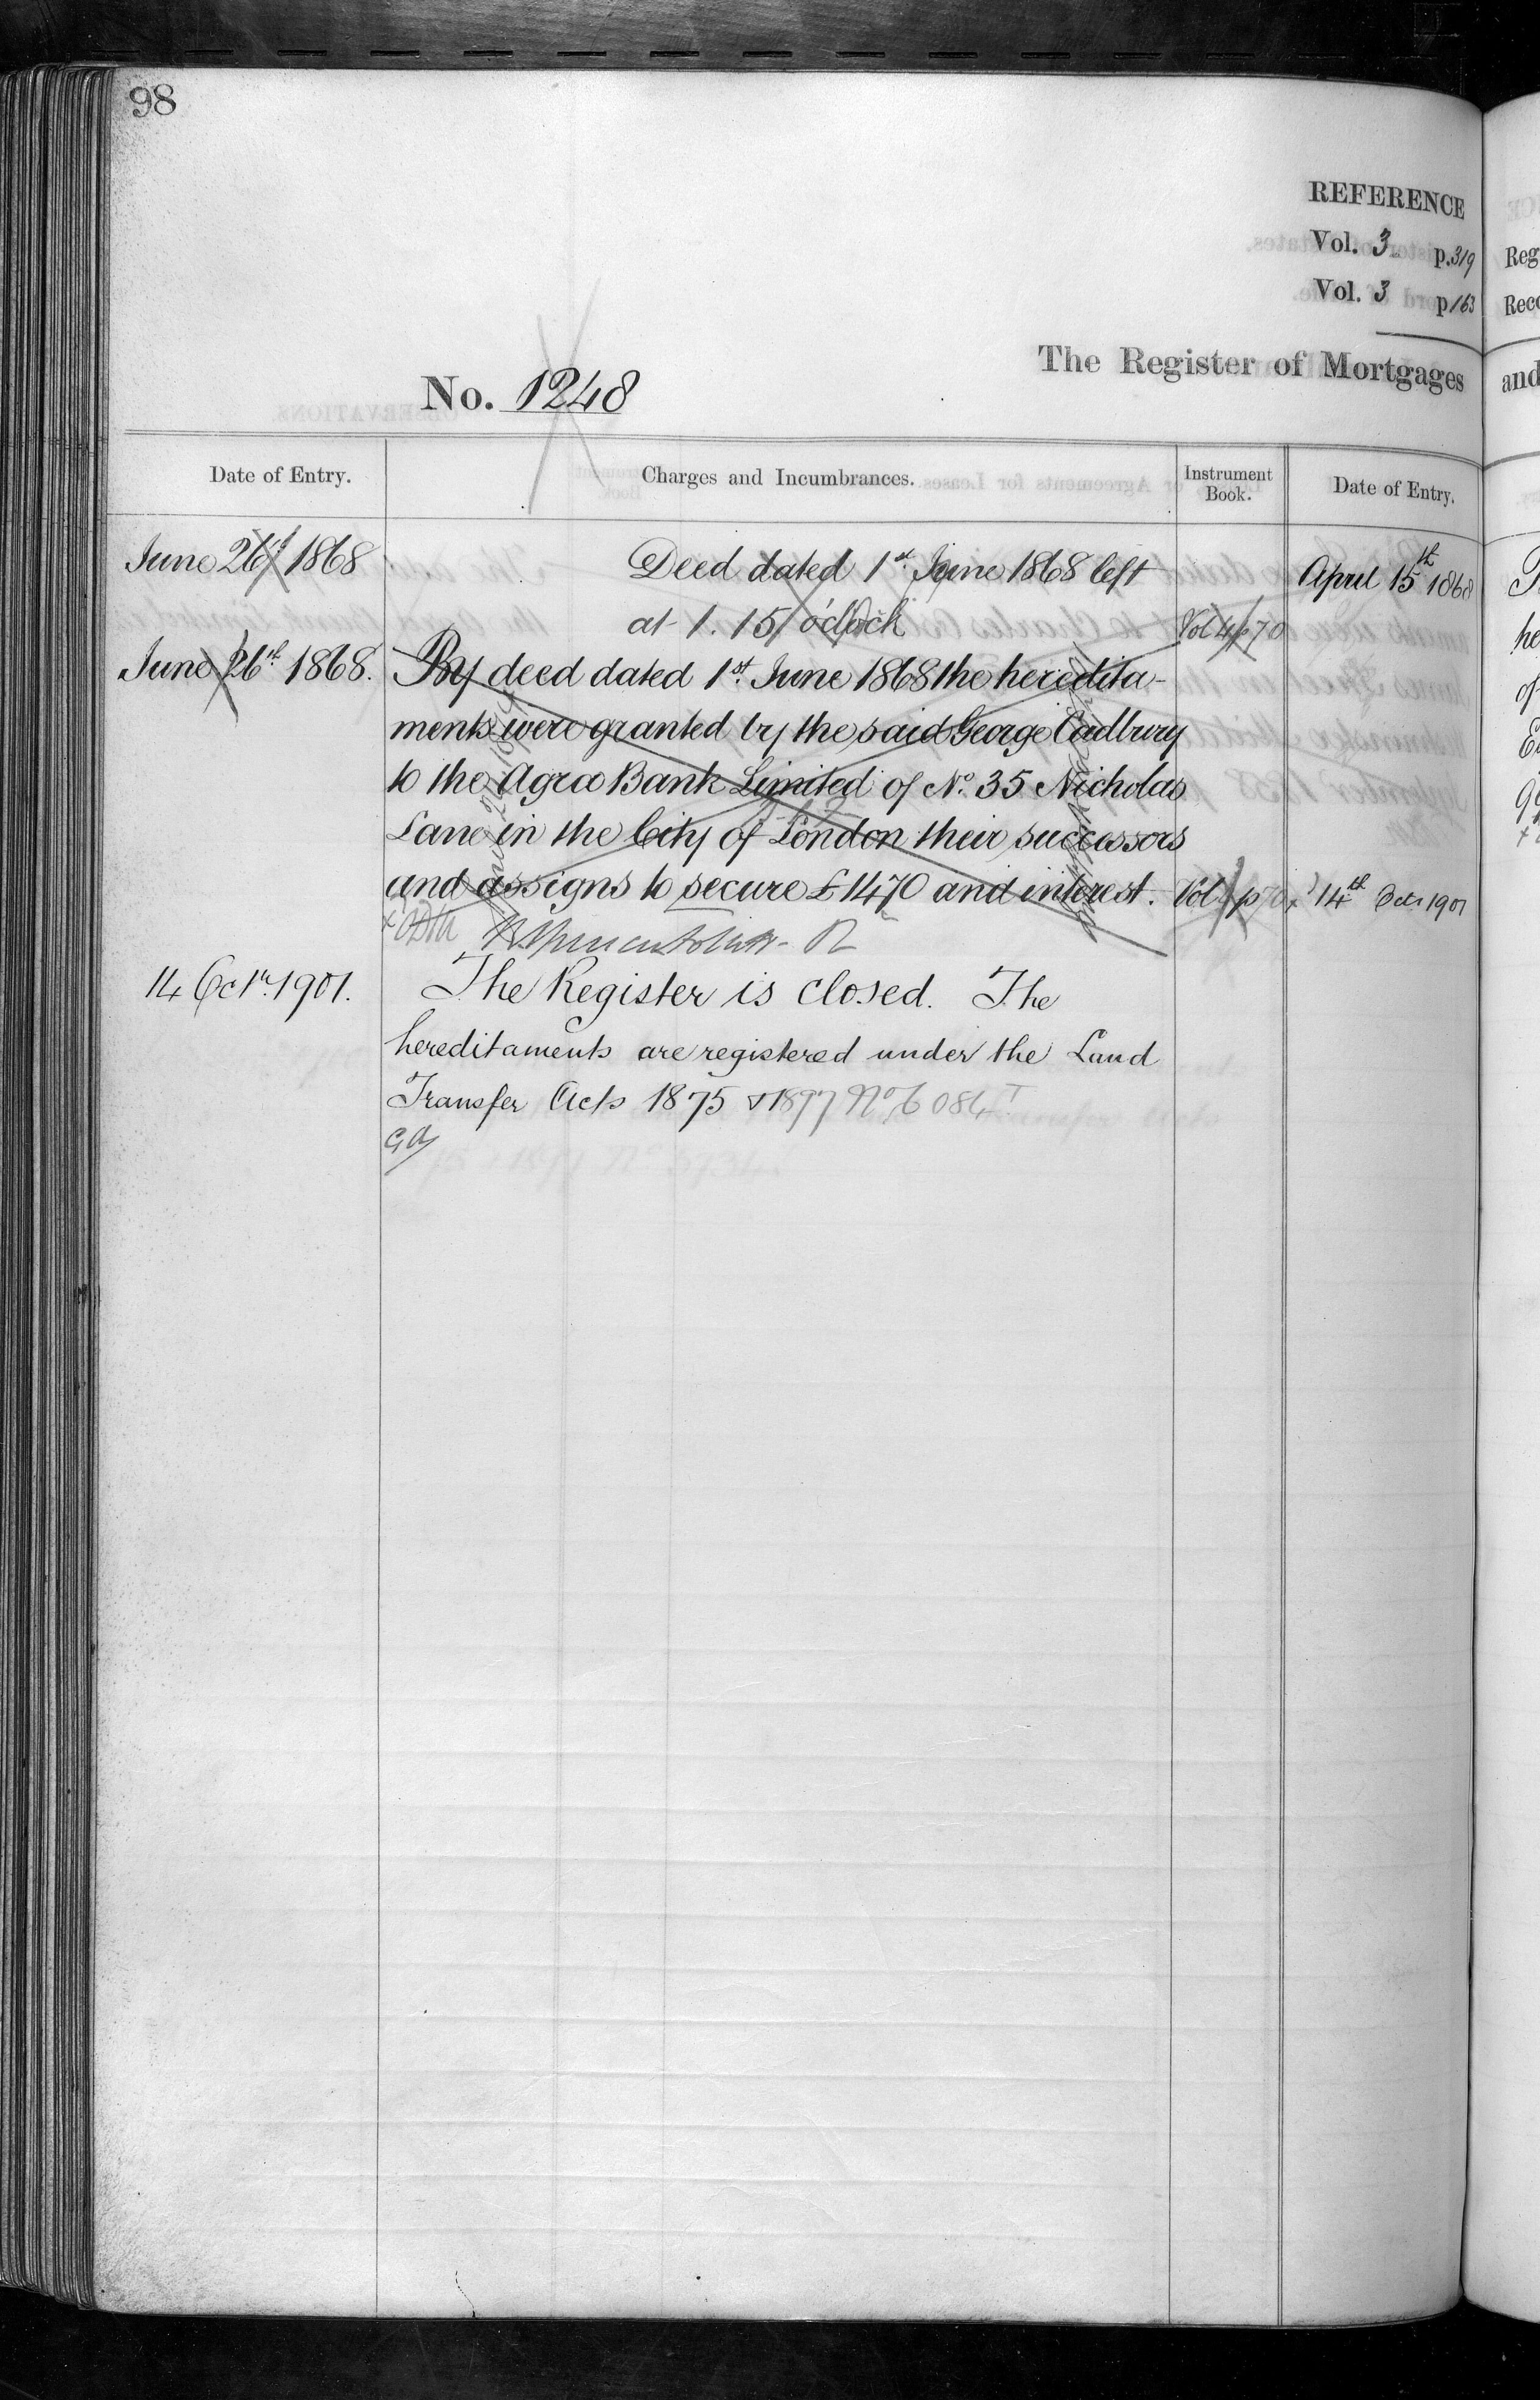 98
REFERENCE
Vol. 3 p. 319
Vol. 3 p 163
The Register of Mortgages
No. 1248
Date of Entry. Charges and Incumbrances. Instrument Book. Date of Entry.
June 26th 1868 Deed dated 1st June 1868 left April 15th 1868
at 1.15 o'clock Vol 4 p 70
June 26th 1868. By deed dated 1st June 1868 the heredita-
ments were granted by the said George Cadbury
to the Agra Bank Limited of No. 35 Nicholas
Lane in the City of London their successors
and assigns to secure £1470 and interest. Vol p 70 14th Octr 1901
14 Octr. 1901. The Register is closed. The
hereditaments are registered under the Land
Transfer Acts 1875 & 1897 No
Reg
Reco
and